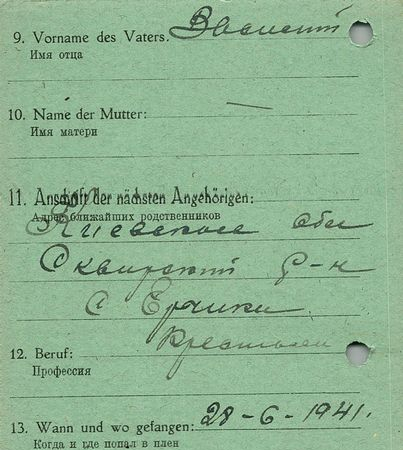 9. Vorname des Vaters: Василий
Имя отца
10. Name der Mutter: —
Имя матери
11. Anschrift der nächsten Angehörigen:
Адрес ближайших родственников
Киевская обл
Сквирский р-н
с Ерчики
Крестьян
12. Beruf:
Профессия
13. Wann und wo gefangen: 28-6-1941.
Когда и где попал в плен